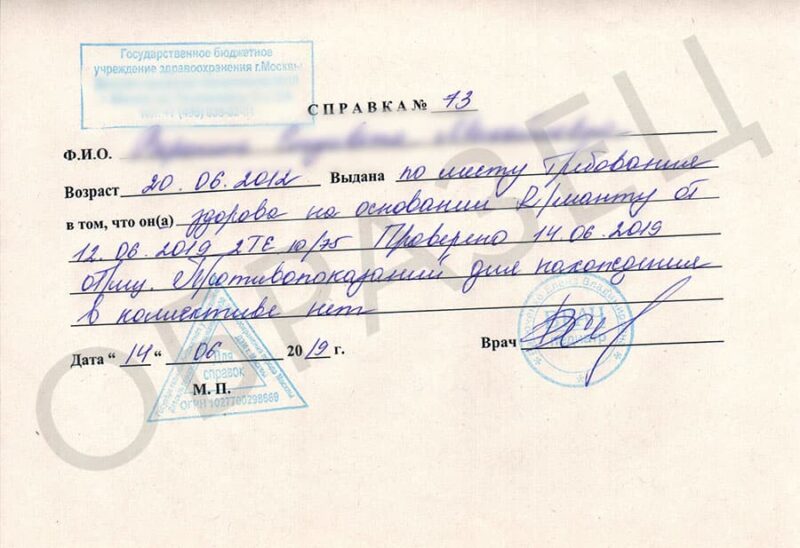 Государственное бюджетное
учреждение здравоохранения г.Москвы
СПРАВКА № 73
Ф.И.О.
Возраст 20.06.2012 Выдана по месту требования
в том, что он(а) здорова на основании R/манту от
12.06.2019 2ТЕ Проверено 14.06.2019
Противопоказаний для нахождения
в коллективе нет
Врач
Дата “ 14 “ 06 2019 г.
М. П.
Для
справок
ОГРН 1027700298669
Елена Владимировна
ВРАЧ
ОБРАЗЕЦ